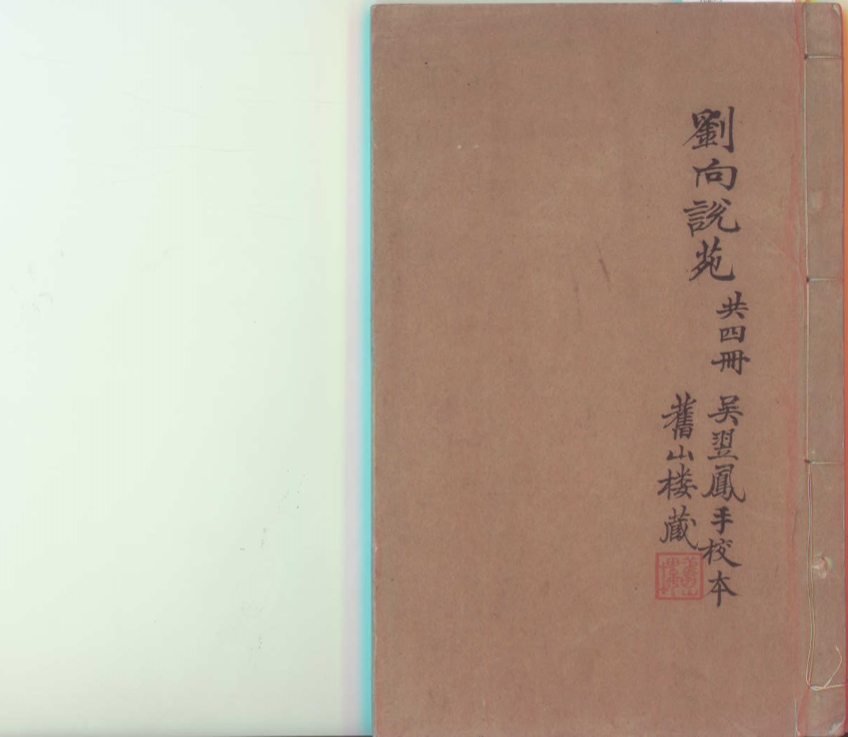 劉向說苑 共四冊 吳翌鳳手校本
舊山楼藏